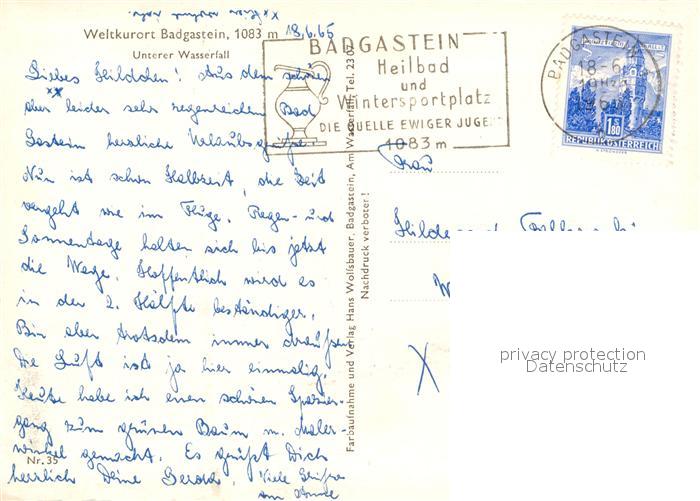 Weltkurort Badgastein, 1083 m
18.6.65
Unterer Wasserfall
Liebes Hildchen! Aus dem schönen
aber leider sehr regenreichen Bad
Gastein herzliche Urlaubsgrüße.
Nun ist schon Halbzeit, die Zeit
vergeht wie im Fluge. Regen- und
Sonnentage halten sich bis jetzt
die Wage. Hoffentlich wird es
in der 2. Hälfte beständiger.
Bin aber trotzdem immer draußen
Die Luft ist ja hier einmalig.
Heute habe ich einen schönen Spazier-
gang zum grünen Baum m. Maler-
winkel gemacht. Es grüßt Dich
Nr. 35
herzlich Deine Gerda. Viele Grüße
Farbaufnahme und Verlag Hans Wolfsbauer, Badgastein, Am Wasserfall, Tel. 23 07
Nachdruck verboten!
BADGASTEIN
Heilbad
und
Wintersportplatz
DIE QUELLE EWIGER JUGEND
1083 m
BADGASTEIN
18-6
1.80
REPUBLIK ÖSTERREICH
Frau
X
privacy protection
Datenschutz